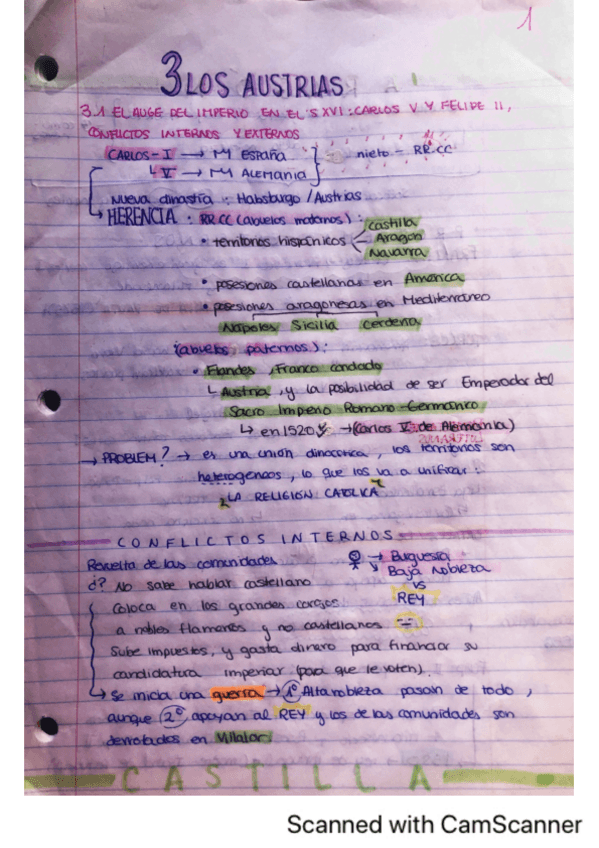 1
3 LOS AUSTRIAS
3.1 EL AUGE DEL IMPERIO EN EL S XVI: CARLOS V Y FELIPE II,
CONFLICTOS INTERNOS Y EXTERNOS
CARLOS-I → M ESPAÑA nieto - RR.CC
↳ V → M ALEMANIA
Nueva dinastía: Habsburgo / Austrias
↳ HERENCIA: RR.CC (abuelos maternos):
• territorios hispánicos Castilla
Aragón
Navarra
• posesiones castellanas en America
• posesiones aragonesas en Mediterráneo
Nápoles Sicilia Cerdeña
(abuelos paternos):
• Flandes, Franco condado
↳ Austria, y la posibilidad de ser Emperador del
Sacro Imperio Romano-Germánico
↳ en 1520 → (Carlos V de Alemania)
→ PROBLEM? → es una unión dinástica, los territorios son
heterogeneos, lo que los va a unificar:
LA RELIGION CATOLICA
CONFLICTOS INTERNOS
Revuelta de las comunidades → Burguesía
¿? No sabe hablar castellano ↘ Baja Nobleza
VS
Coloca en los grandes cargos REY
a nobles flamencos y no castellanos
Sube impuestos, y gasta dinero para financiar su
candidatura imperial (para que le voten).
↳ Se inicia una guerra → 1º Alta nobleza pasan de todo,
aunque 2º apoyan al REY y los de las comunidades son
derrotados en Villalar
CASTILLA
Scanned with CamScanner